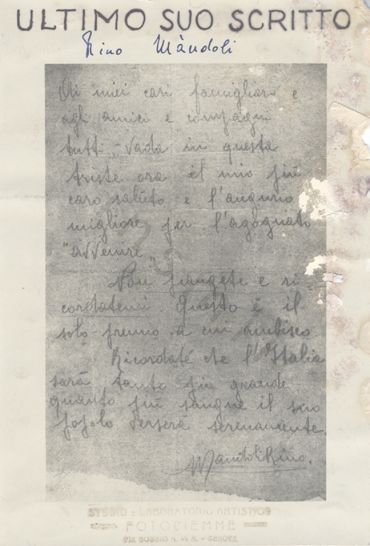 ULTIMO SUO SCRITTO
Rino Màndoli
Ai miei cari famigliari e
agli amici e compagni
tutti, vada in questa
triste ora il mio più
caro saluto e l'augurio
migliore per l'agognato
"avvenire"
Non piangete e ri-
cordatemi. Questo è il
solo premio a cui ambisco.
Ricordate che l'Italia
sarà tanto più grande
quanto più sangue il suo
popolo verserà serenamente.
Mandoli Rino.
STUDIO E LABORATORIO ARTISTICO
FOTOGIEMME
GENOVA